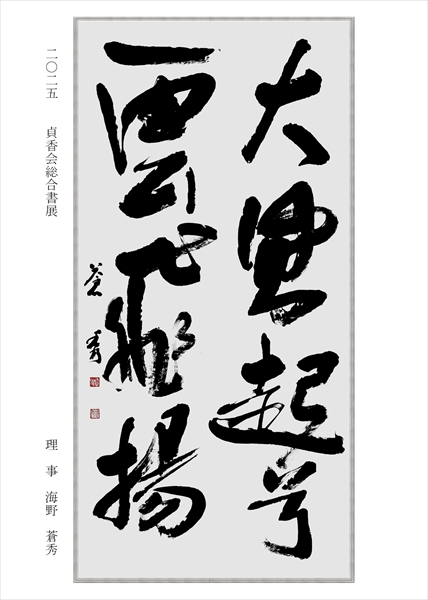 大風起兮
雲飛揚
蒼秀
二〇二五 貞香会総合書展
理事 海野 蒼秀